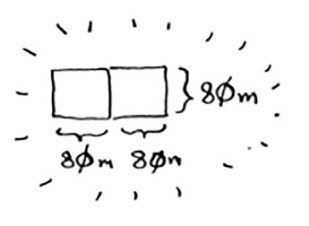 80m
80m 80m